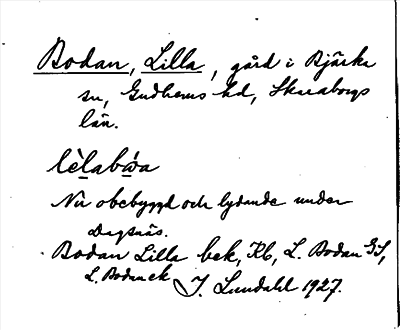 Bodan, Lilla, gård i Bjärka
sn, Gudhems hd, Skaraborgs
län.
lèlabẁa
Nu obebyggd och lydande under
Dagsnäs.
Bodan Lilla bek, Kb, L. Bodan GS,
L. Bodan ek
I. Lundahl 1927.